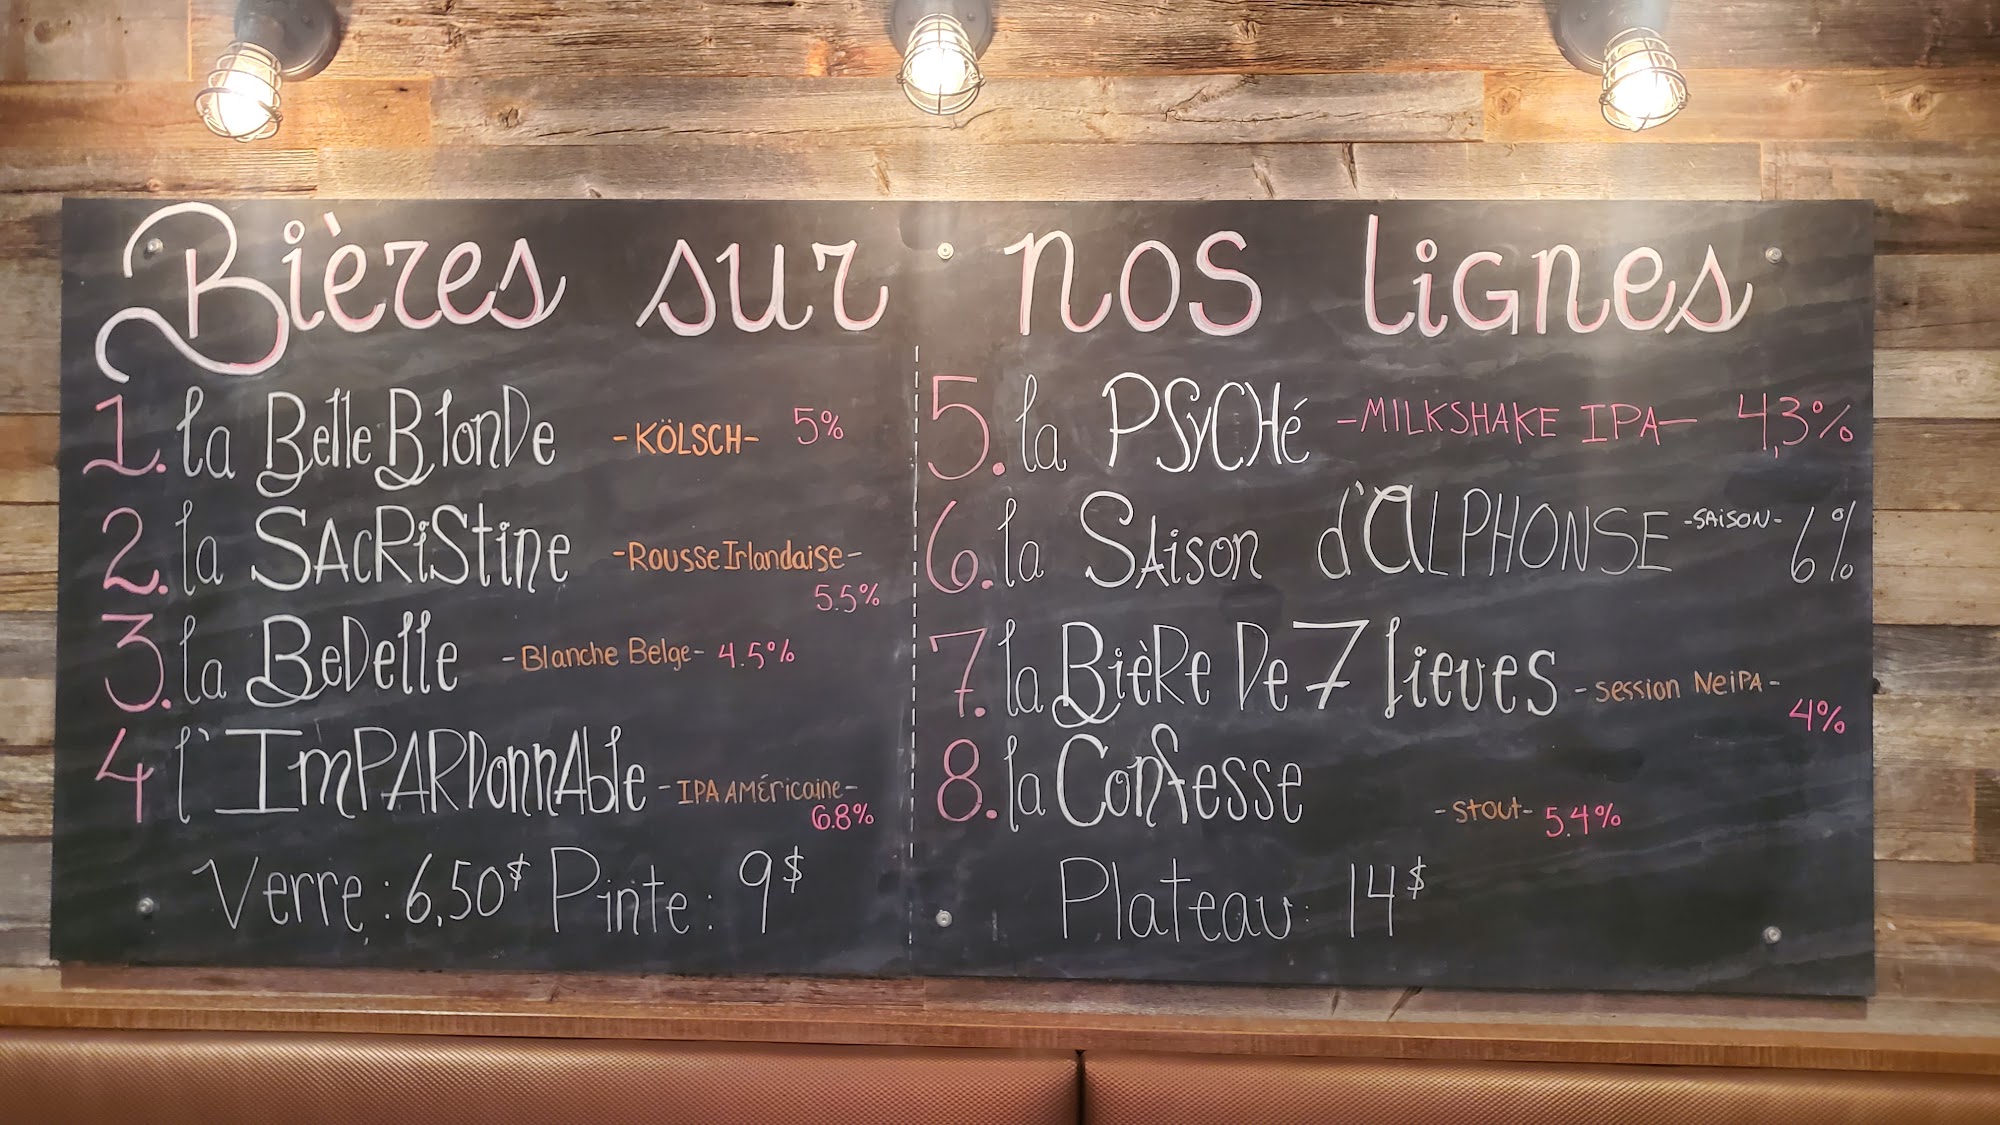 Bières sur nos lignes
1. la Belle Blonde -KÖLSCH- 5%
2. la SACRiStine -Rousse Irlandaise-
5.5%
3. la BeDelle -Blanche Belge- 4.5%
4 l'ImPARDonnAble -IPA AMéricaine-
6.8%
Verre: 6,50$ Pinte: 9$
5. la PSyCHé -MILKSHAKE IPA- 4,3%
6. la SAison d'ALPHONSE -SAISON- 6%
7. la BièRe De 7 lieues -session NeiPA-
4%
8. la Confesse -Stout- 5.4%
Plateau: 14$